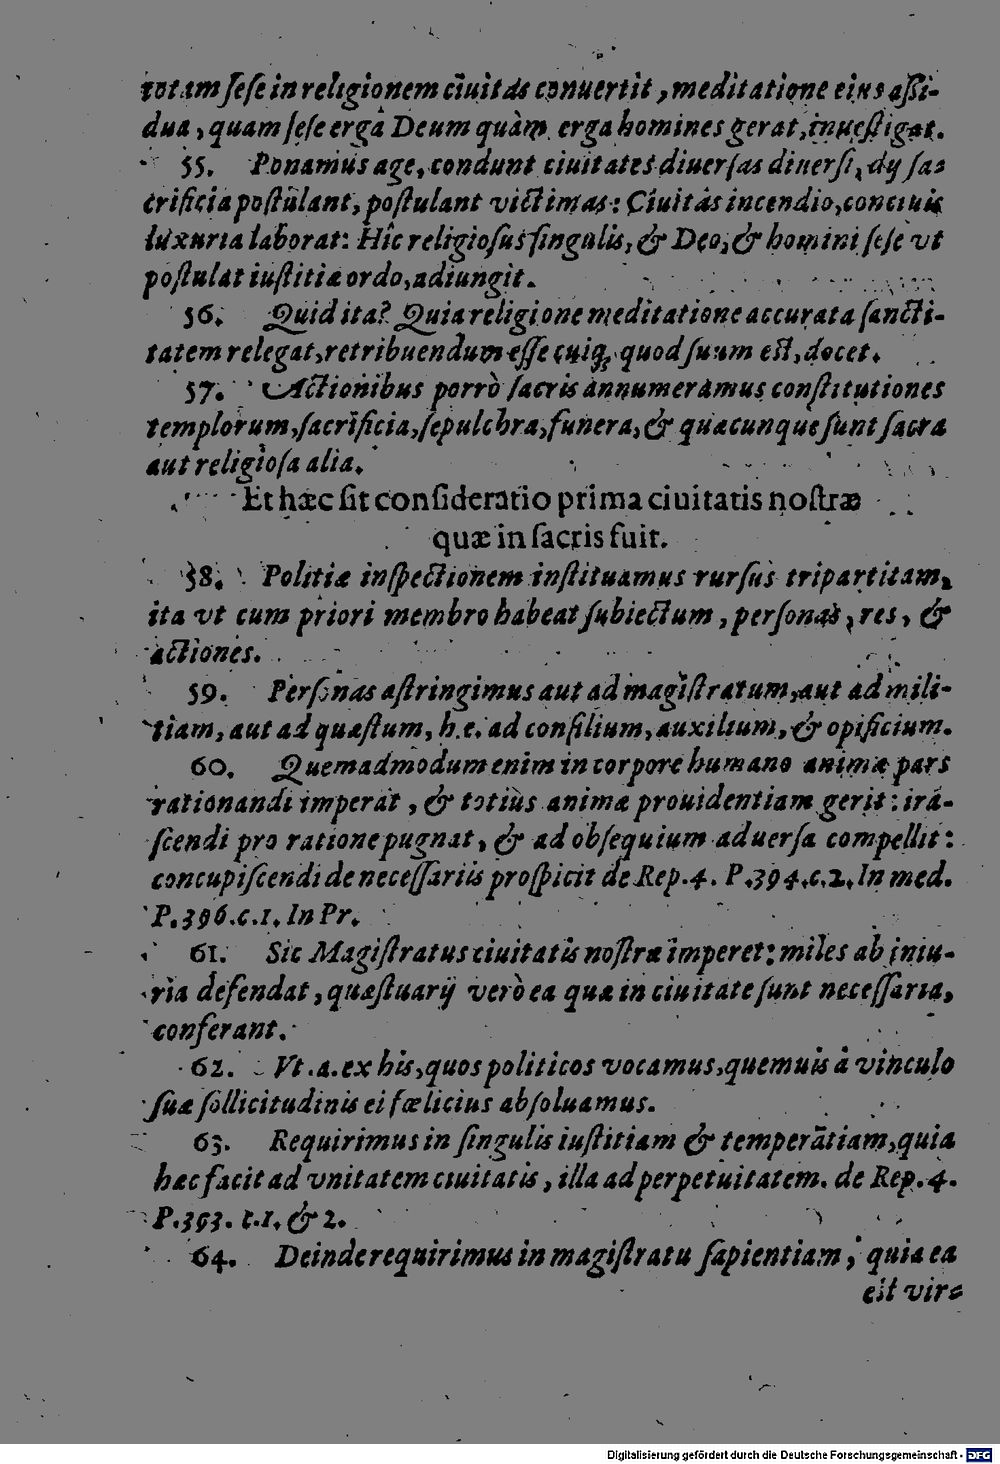 totam ſeſe in religionem ciuitas conuertit, meditatione eius aßi-
dua, quam ſeſe ergà Deum quàm erga homines gerat, inueſtigat.
55. Ponamus age, condunt ciuitates diuerſas diuerſi, dÿ ſa-
crificia poſtulant, poſtulant victimas: Ciuitas incendio, conciuis
luxuria laborat: Hic religioſus ſingulis, & Deo, & homini ſeſe vt
poſtulat iuſtitiæ ordo, adiungit.
56. Quid ita? Quia religione meditatione accurata ſancti-
tatem relegat, retribuendum eſſe cuiq́; quod ſuum eſt, docet.
57. Actionibus porrò ſacris annumeramus conſtitutiones
templorum, ſacrificia, ſepulchra, funera, & quæcunque ſunt ſacra
aut religioſa alia.
Et hæc ſit conſideratio prima ciuitatis noſtræ
quæ in ſacris fuit.
58. Politiæ inſpectionem inſtituamus rurſus tripartitam,
ita vt cum priori membro habeat ſubiectum, perſonas, res, &
actiones.
59. Perſonas aſtringimus aut ad magiſtratum, aut ad mili-
tiam, aut ad quæſtum, h.e. ad conſilium, auxilium, & opificium.
60. Quemadmodum enim in corpore humano animæ pars
rationandi imperat, & totius animæ prouidentiam gerit: ira-
ſcendi pro ratione pugnat, & ad obſequium aduerſa compellit:
concupiſcendi de neceſſariis proſpicit de Rep. 4. P. 394. c. 2. In med.
P. 396. c. 1. In Pr.
61. Sic Magiſtratus ciuitatis noſtræ imperet: miles ab iniu-
ria defendat, quæſtuarÿ verò ea quæ in ciuitate ſunt neceſſaria,
conferant.
62. Vt .a. ex his, quos politicos vocamus, quemuis à vinculo
ſuæ ſollicitudinis ei fœlicius abſoluamus.
63. Requirimus in ſingulis iuſtitiam & temperātiam, quia
hæc facit ad vnitatem ciuitatis, illa ad perpetuitatem. de Rep. 4.
P. 393. c. 1. & 2.
64. Deinde requirimus in magiſtratu ſapientiam, quia ea
eſt vir-
Digitalisierung gefördert durch die Deutsche Forschungsgemeinschaft - DFG